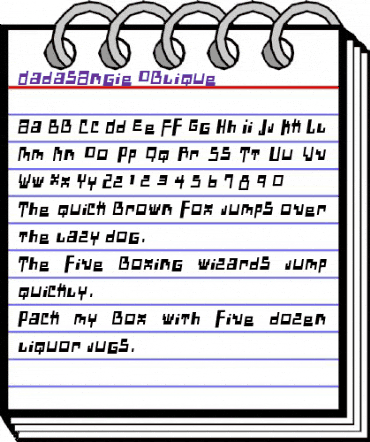 DadaSangie Oblique
Aa BB Cc Dd Ee FF GG Hh ii Jj Kk LL
Mm Nn Oo Pp Qq Rr SS TT Uu Vv
Ww Xx Yy Zz 1 2 3 4 5 6 7 8 9 0
The quick Brown Fox jumps over
the Lazy dog.
The Five Boxing wizards jump
quickly.
Pack my Box with Five dozen
Liquor jugs.